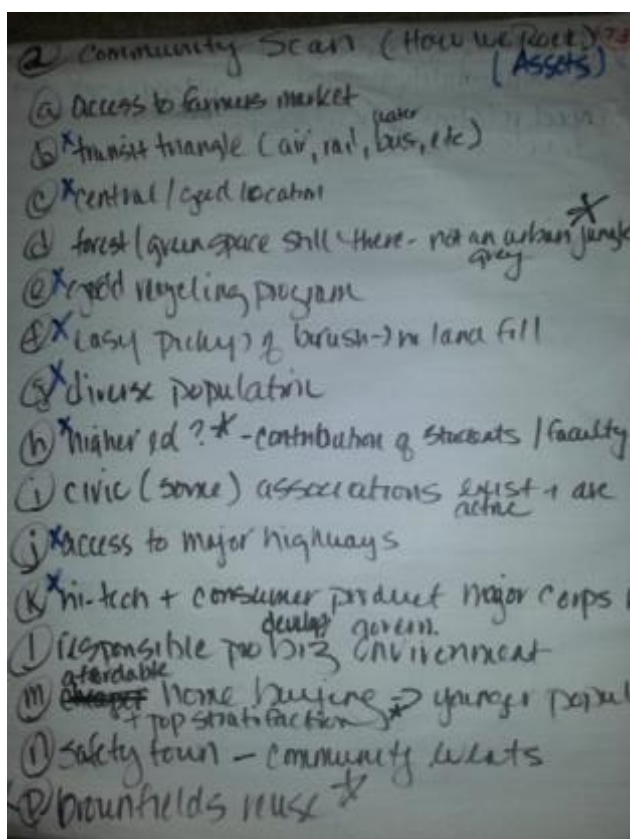 2 Community Scan (How we Rock)
(Assets)
a access to farmers market
b x transit triangle (air, rail, water bus, etc)
c x central / good location
d forest / green space still there - not an urban jungle
grey
e x good recycling program
f x easy pickup of brush -> no land fill
g x diverse population
h x higher ed ? * - contribution of students / faculty
i civic (some) associations exist + are
active
j x access to major highways
k x hi-tech + consumer product major corps
develop govern.
l responsible pro biz environment
affordable
m cheaper home buying -> younger popul
+ pop stratifaction *
n safety town - community events
p brownfields reuse *